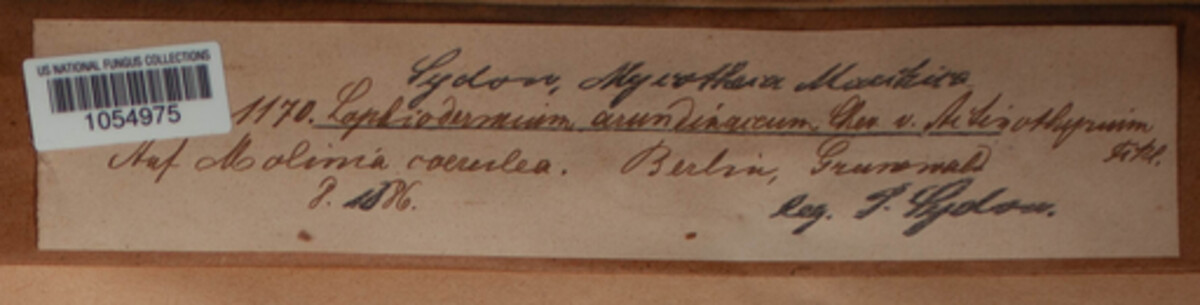 US NATIONAL FUNGUS COLLECTIONS
1054975
Sydow, Mycotheca Marchica
1170. Lophiodermium arundinaceum Chev. v. Actinothyrium
Fckl.
Auf Molinia coerulea. Berlin, Grunewald
8. 1886.
leg. P. Sydow.